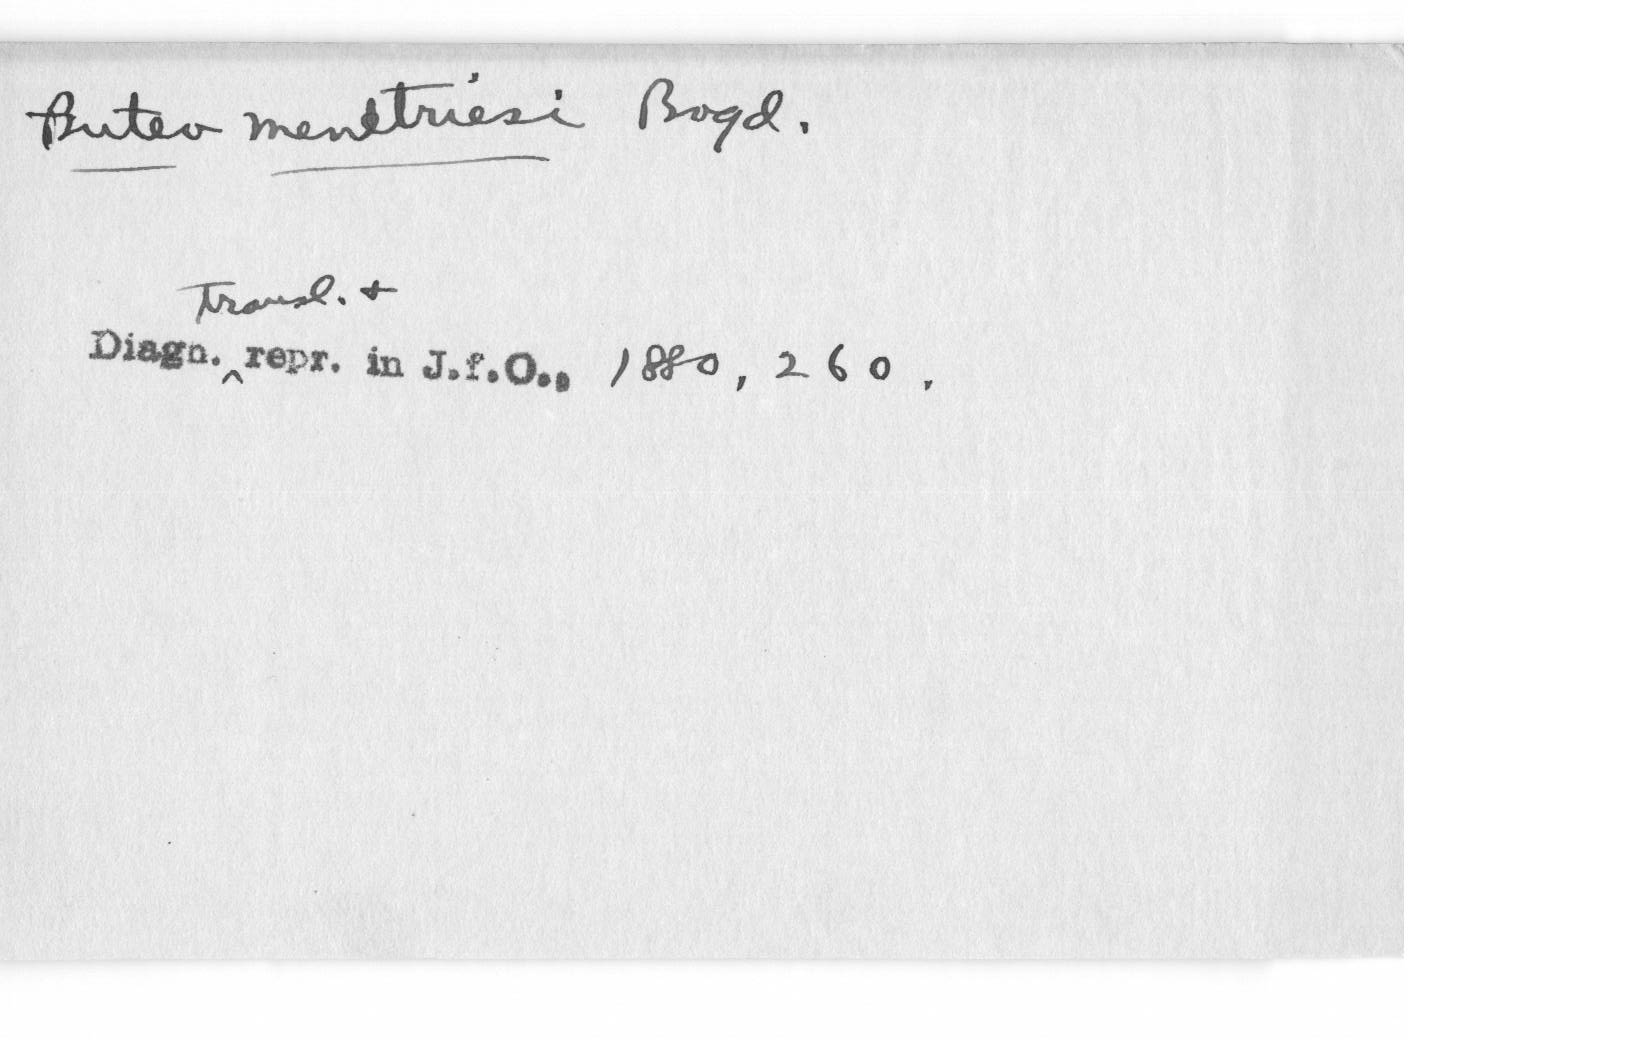 Buteo menetriesi Bogd.
transl. +
Diagn. ‸ repr. in J.f.O., 1880, 260.